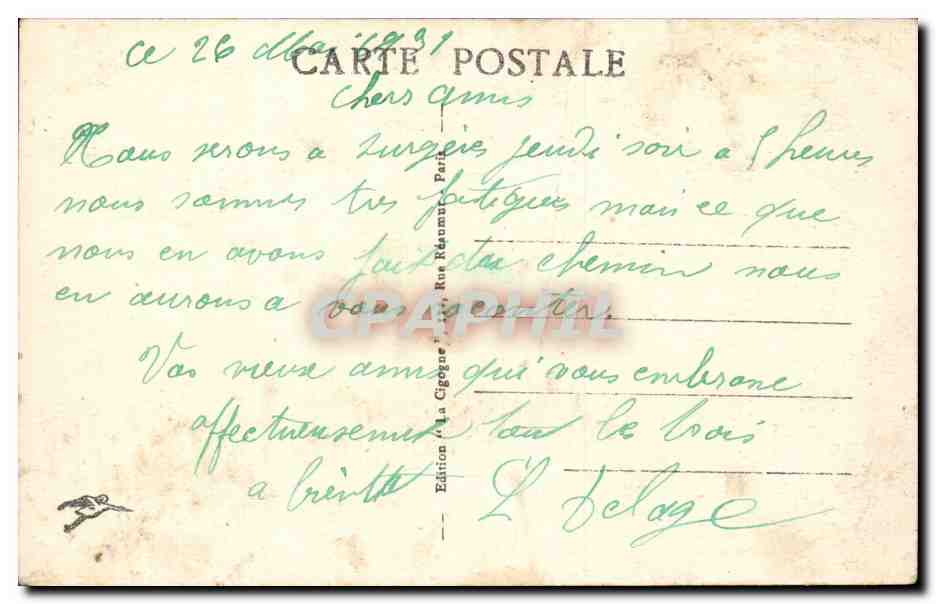 ce 26 Mai 1931
CARTE POSTALE
chers amis
Nous serons a surgères jeudi soir a 5 heures
nous sommes tres fatigues mais ce que
nous en avons fait du chemin nous
en aurons a vous raconter.
Vos vieux amis qui vous embrasse
affectueusement tout les trois
a bientot
L Delage
Edition " La Cigogne " Rue Réaumur - Paris
CPAPHIL